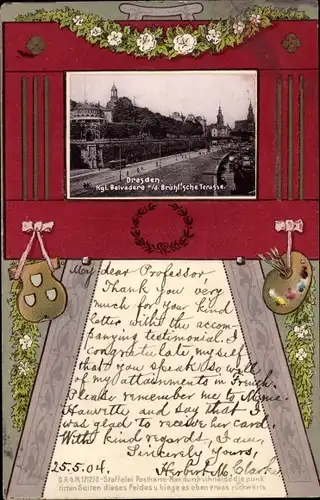 Dresden
Kgl. Belvedere a/d. Brühl'sche Terasse.
My dear Professor
Thank you very
much for your kind
letter with the accom-
panying testimonial. I
congratulate myself
that you speak so well
of my attainments in French.
Please remember me to Mme.
Hauvette and say that I
was glad to receive her card.
With kind regards, I am,
Sincerely yours,
25.5.04. Herbert M. Clarke
D.R.G.M. Staffelei Postkarte - Man durchschneide die punk
tirten Seiten dieses Feldes u. biege es oben etwas rückwärts.